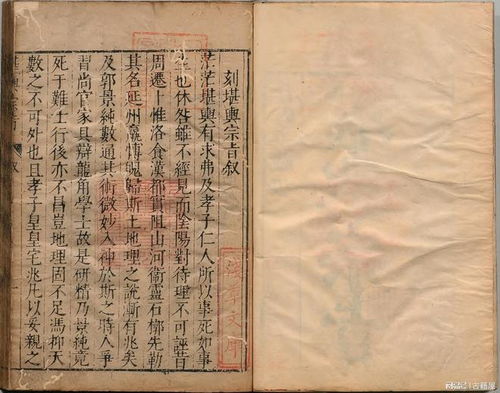 刻堪輿宗旨叙
茫茫堪輿有求弗及孝子仁人所以事死如事
生也休咎雖不經見而陰陽對待理不可誣昔
周遷卜惟洛食漢都實阻山河衞靈石槨先勒
其名延州嬴博魄歸斯土地理之說漸有兆矣
及郭景純數通其術微妙入神於斯之時人爭
習尚官家具辯龍角學士故是研精乃景純竟
死于難士行後亦不昌豈地理固不足馮抑天
數之不可外也且孝子皇皇宅兆凡以妥親之
堪輿宗旨 叙
搜狐号@古籍屋